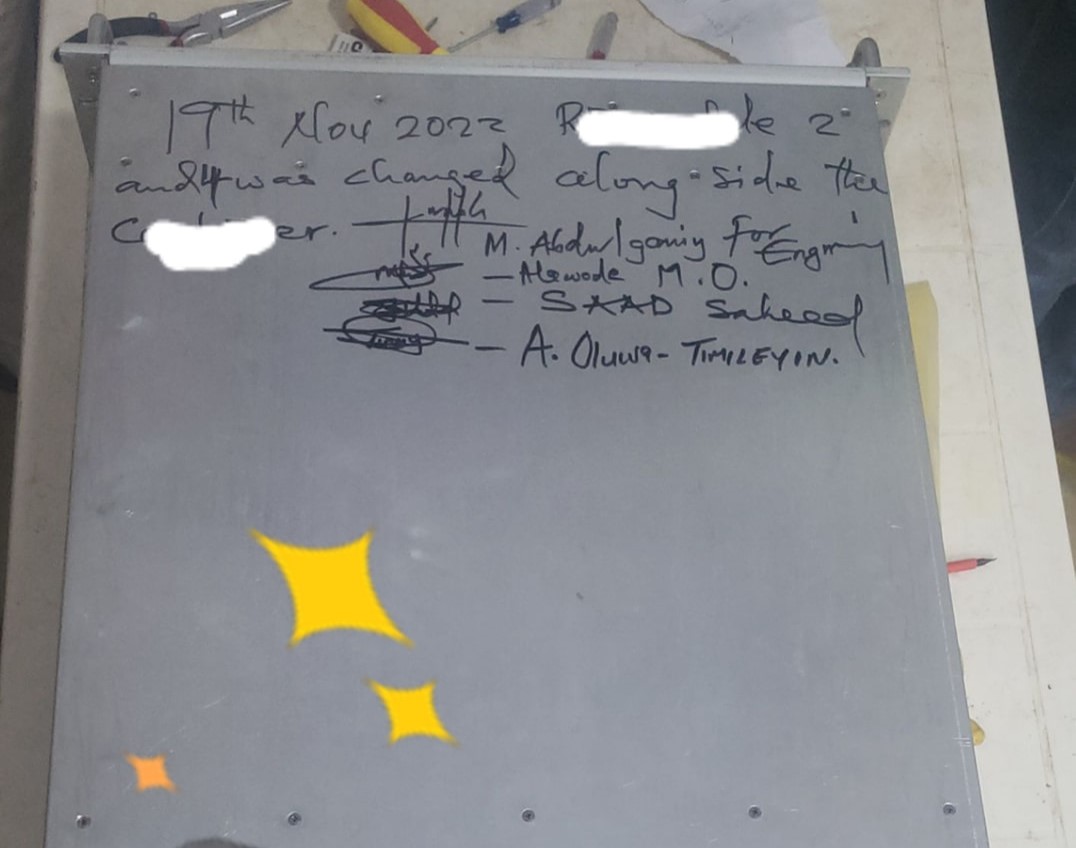 19th Nov 2022 R le 2
and 4 was changed along-side the
C er.
M. Abdulganiy For Engring
— Alawode M.O.
— SAAD Saheed
— A. Oluwa-TIMILEYIN.